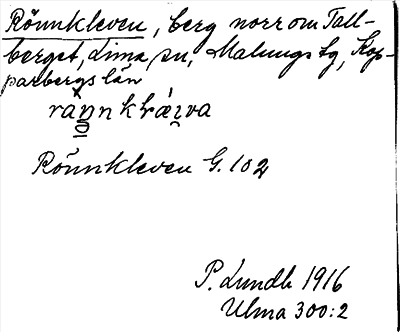 Rönnkleven, berg norr om Tall-
berget, Lima sn, Malungs tg, Kop-
parbergs län
Rönnkleven G. 102
P. Lundb 1916
Ulma 300:2